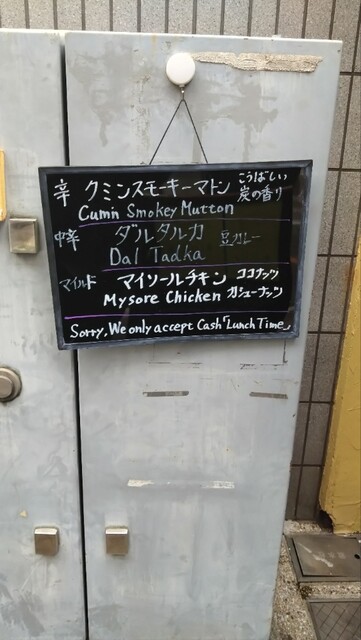 辛 クミンスモーキーマトン こうばしい
炭の香り
Cumin Smokey Mutton
中辛 ダルタルカ 豆カレー
Dal Tadka
マイルド マイソールチキン ココナッツ
Mysore Chicken カシューナッツ
Sorry, We only accept Cash「Lunch Time」